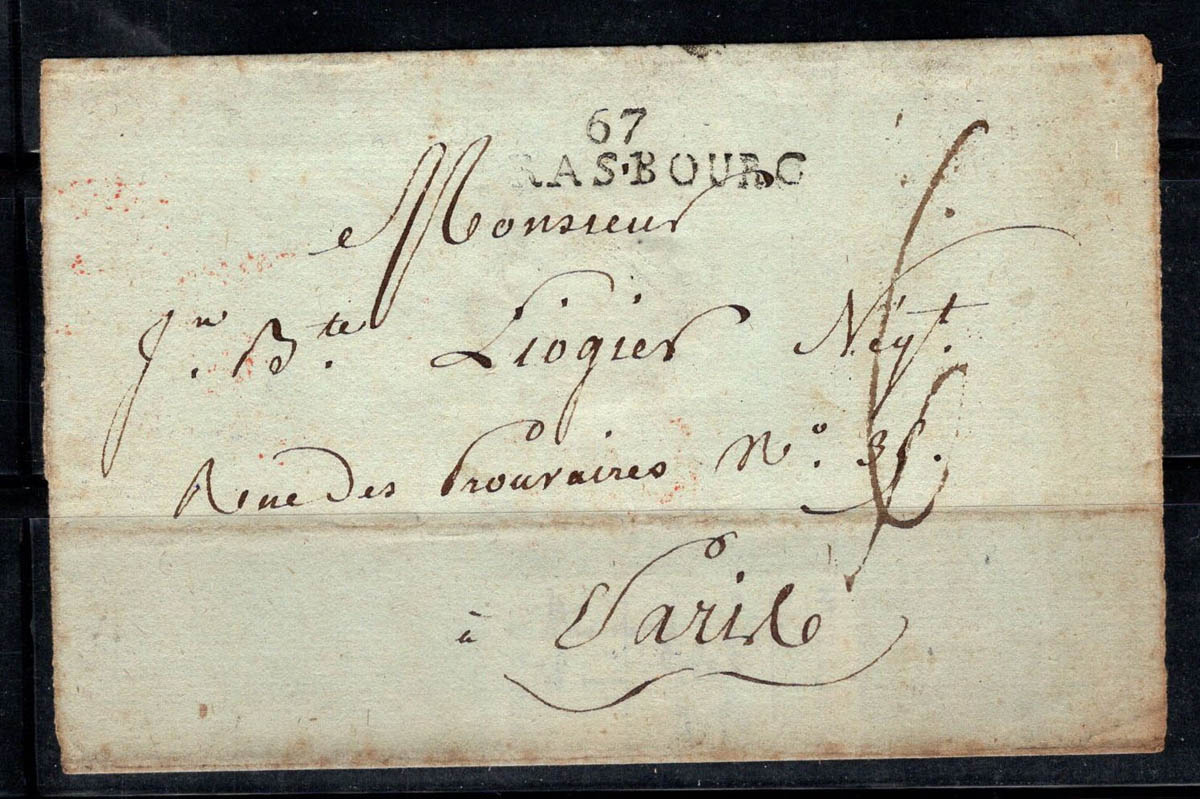 67
RASBOURG
Monsieur
Jn. Bte. Liogier Negt.
Rue Des Prouvaires No. 38.
à Paris